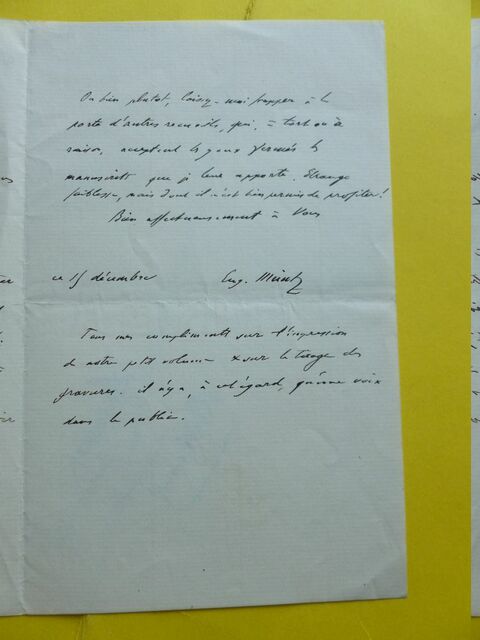 Ou bien plutôt, laissez-moi frapper à la
porte d'autres recueils, qui, à tort ou à
raison, acceptent les yeux fermés les
manuscrits que je leur apporte. Étrange
faiblesse, mais dont il m'est bien permis de profiter!
Bien affectueusement à Vous
ce 15 décembre
Eug. Müntz
Tous mes compliments sur l'impression
de notre petit volume & sur le tirage des
gravures. il n'y a, à cet égard, qu'une voix
dans le public.